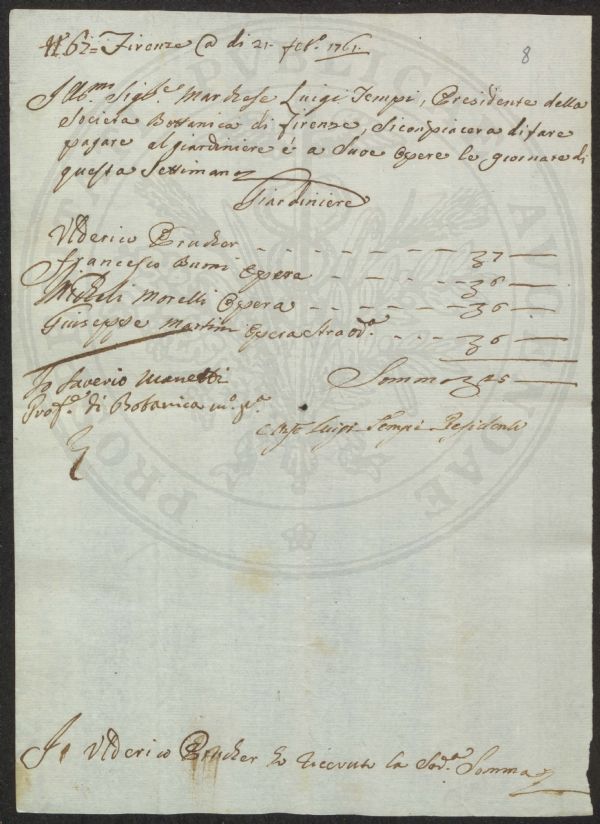 N.° 62= Firenze @ di 21. feb.° 1761.
8
Illo.mo Sig.re Marchese Luigi Tempi, Presidente della
Società Bottanica di firenze, Si conpiacera di fare
pagare al giardiniere é a Sue Opere le giornate di
questa Settimana
Giardiniere
Vlderico Prucker - - - - - - - - 37 —
Francesco Bumi Opera - - - - - 36 —
Micheli Morelli Opera - - - - - 36 —
Giuseppe Martini Opera straord.a - - - 36 —
Somma 325 —
Io Saverio Manetti
Prof.e di Botanica m.o p.a
Luigi Tempi Presidente
Io Vlderico Prucker ho ricevuto la Sod.a Somma
PRO PUBLICAE FAUCE DAE